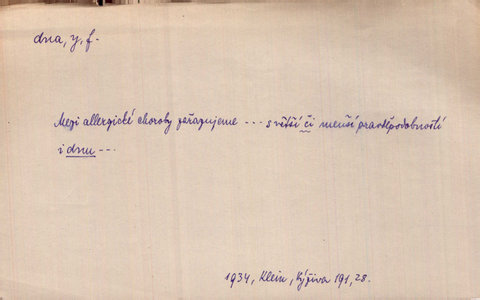 dna, y, f.
Mezi allergické choroby zařazujeme --- s větší či menší pravděpodobností
i dnu ---
1934, Klein, Výživa 191, 28.